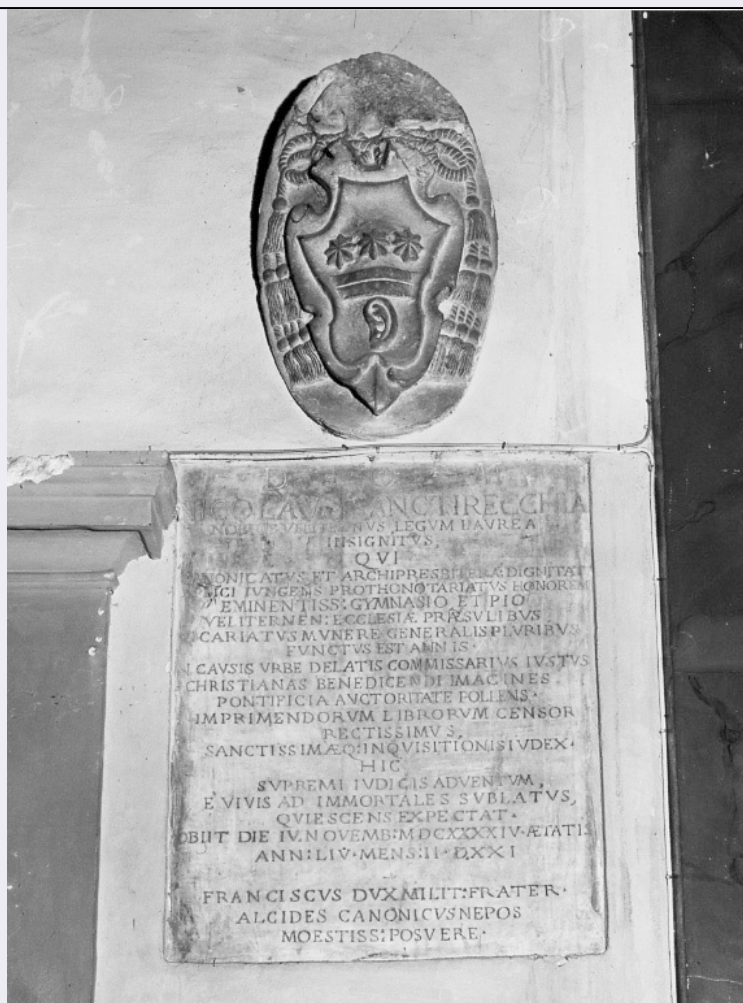 D O M
NICOLAVS SANCTIRECCHIA
NOBILIS VELITERNVS LEGVM LAVREA
INSIGNITVS,
QVI
CANONICATVS ET ARCHIPRESBITERÆ DIGNITATI
IVNGENS PROTHONOTARIATVS HONOREM
EMINENTISS: GYMNASIO ET PIO
VELITERNEN: ECCLESIÆ PRÆSVLIBUS
VICARIATVS MVNERE GENERALIS PLURIBUS
FVNCTVS EST ANNIS·
IN CAVSIS VRBE DELATIS COMMISSARIVS IVSTVS
CHRISTIANAS BENEDICENDI IMAGINES
PONTIFICIA AVCTORITATE POLLENS·
IMPRIMENDORVM LIBRORVM CENSOR
RECTISSIMVS,
SANCTISSIMÆQ: INQVISITIONIS IVDEX·
HIC
SVPREMI IVDICIS ADVENTVM,
E VIVIS AD IMMORTALES SVBLATVS,
QVIESCENS EXPECTAT·
OBIIT DIE IV NOVEMB: MDCXXXXIV·ÆTATIS
ANN: LIV· MENS: II· D,XXI
FRANCISCVS DVX MILIT: FRATER·
ALCIDES CANONICVS NEPOS
MOESTISS: POSVERE·